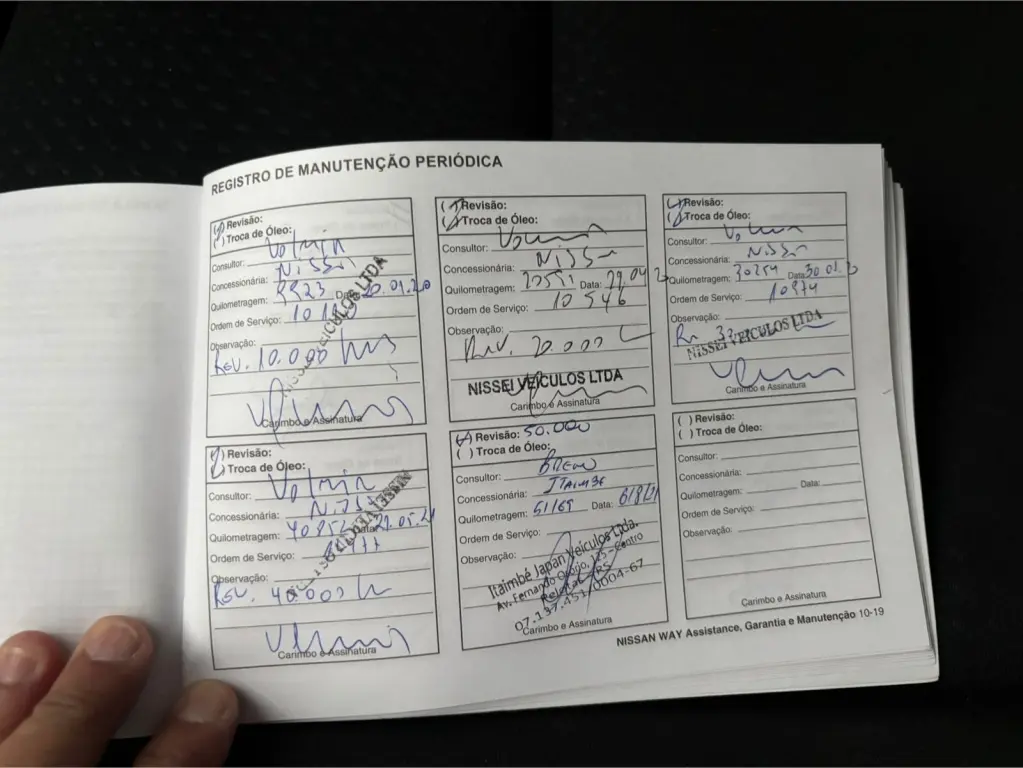 REGISTRO DE MANUTENÇÃO PERIÓDICA
( ) Revisão:
( ) Troca de Óleo:
Consultor: Volmir
Concessionária: Nissei
Quilometragem: 9923 Data: 20.01.20
Ordem de Serviço:
Observação:
Rev. 10.000 km
NISSEI VEICULOS LTDA
Carimbo e Assinatura
( ) Revisão:
( ) Troca de Óleo:
Consultor: Volmir
Concessionária: Nissei
Quilometragem: Data:
Ordem de Serviço: 10546
Observação:
Rev. 20.000
NISSEI VEICULOS LTDA
Carimbo e Assinatura
( ) Revisão:
( ) Troca de Óleo:
Consultor: Volmir
Concessionária: Nissei
Quilometragem: 30254 Data: 30.01.
Ordem de Serviço: 10974
Observação:
NISSEI VEICULOS LTDA
Carimbo e Assinatura
( ) Revisão:
( ) Troca de Óleo:
Consultor: Volmir
Concessionária: Nissei
Quilometragem: 40952 Data: .05.21
Ordem de Serviço:
Observação:
Rev. 40.000 km
NISSEI VEICULOS LTDA
Carimbo e Assinatura
( ) Revisão: 50.000
( ) Troca de Óleo:
Consultor: Breno
Concessionária: Itaimbé
Quilometragem: 51169 Data: 6/8/21
Ordem de Serviço:
Observação:
Itaimbé Japan Veículos Ltda.
Av. Fernando - Centro
07.137.451/0004-67
Carimbo e Assinatura
( ) Revisão:
( ) Troca de Óleo:
Consultor:
Concessionária:
Quilometragem: Data:
Ordem de Serviço:
Observação:
Carimbo e Assinatura
NISSAN WAY Assistance, Garantia e Manutenção 10-19